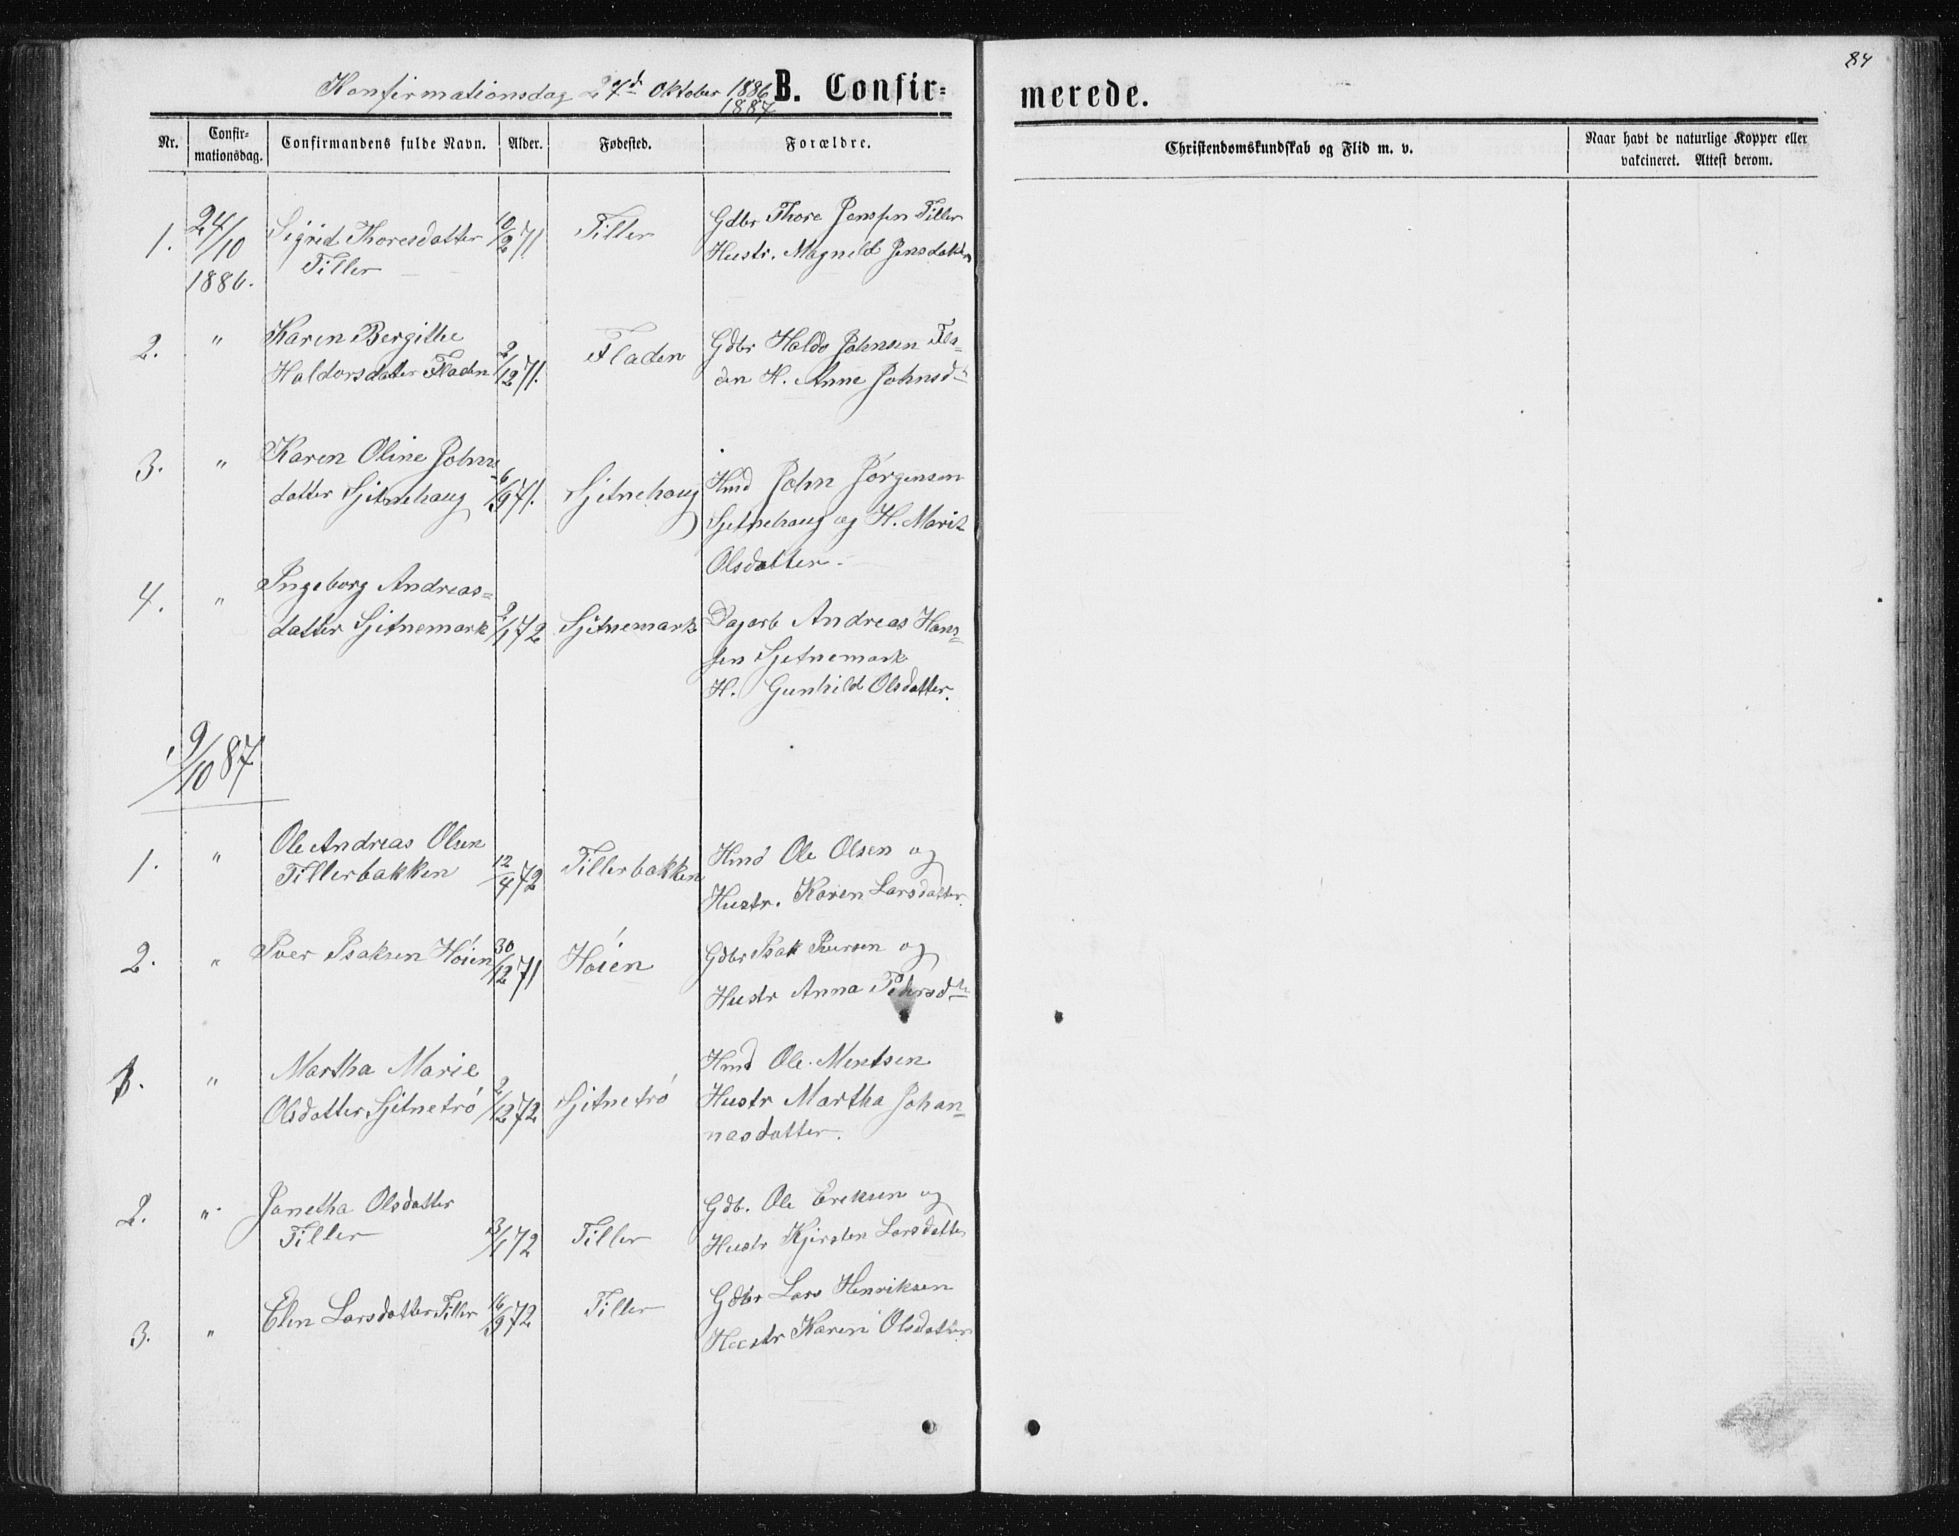 84
Konfirmationsdag 27d Oktober 1886
1887
B. Confirmerede.
Nr. Confirmationsdag. Confirmandens fulde Navn. Alder. Fødested. Forældre. Christendomskundskab og Flid m. v. Naar havt de naturlige Kopper eller vakcineret. Attest derom.
1. 24/10 Sigrid Thoresdatter 10/2 71 Tiller Gdbr Thore Jenssen Tiller
1886. Tiller Hustr. Magnild Jensdatter
2. " Karen Bergitte Gdbr Haldo Johnsen Fla-
Haldorsdatter Fladen 2/12 71. Fladen den H. Anne Johnsdt
3. " Karen Oline Johns
datter Sjetnehaug 6/9 71. Sjetnehaug Hmd John Jørgensen
Sjetnehaug og H. Marit
Olsdatter.
4. " Ingeborg Andreas-
datter Sjetnemark 2/1 72 Sjetnemark Dagarb Andreas Han-
sen Sjetnemark
H. Gunhild Olsdatter.
9/10 87
1. " Ole Andreas Olsen
Tillerbakken 12/4 72 Tillerbakken Hmd Ole Olsen og
Hustr. Karen Larsdatter.
2. " Iver Isaksen Høien 30/12 71 Høien Gdbr Isak Iversen og
Hustr Anna Pedersdtr
1. " Martha Marie Hmd Ole Mentsen
Olsdatter Sjetnetrø 2/12 72 Sjetnetrø Hustr Martha Johan-
nasdatter.
2. " Janetha Olsdatter Gdb. Ole Ereksen og
Tiller 3/1 72 Tiller Hustr Kjersten Larsdatter
3. " Elen Larsdatter Tiller 16/9 72 Tiller Gdbr Lars Henriksen
Hustr Karen Olsdatter